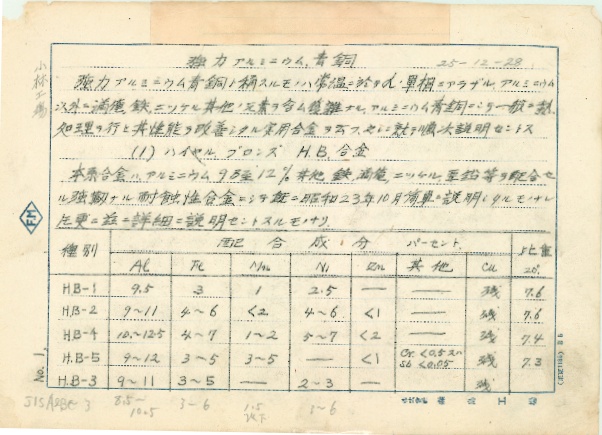 強力アルミニウム青銅 25-12-28
小林工場
強力アルミニウム青銅ト稱スルモノハ常温ニ於テα単相ニアラザル、アルミニウム
以外ニ満俺、鉄ニッケル其他ノ元素ヲ含ム複雑ナル、アルミニウム青銅ニシテ一般ニ熱
処理ヲ行ヒ其性能ヲ改善シタル実用合金ヲ云フ、
(1) ハイヤル ブロンズ H.B.合金
本系合金ハ、アルミニウム 9.5至12%、其他、鉄、満俺、ニッケル、亜鉛等ヲ配合セ
ル強靭ナル耐蝕性合金ニシテ 昭和23年10月 説明シタルモノナレ
茲ニ詳細ニ説明セントスルモノナリ
種別 配合成分 パーセント 比重
Al Fe Mn Ni Zn 其他 Cu 20°
H.B-1 9.5 3 1 2.5 — — 残 7.6
H.B-2 9~11 4~6 <2 4~6 <1 — 残 7.6
H.B-4 10~12.5 4~7 1~2 5~7 <2 — 残 7.4
H.B-5 9~12 3~5 3~5 — <1 Cr <0.5 Sb <0.05 残 7.3
H.B-3 9~11 3~5 — 2~3 — — 残
JIS ABBC 3 8.5~10.5 3~6 1.5以下 3~6
FM
No. 1.